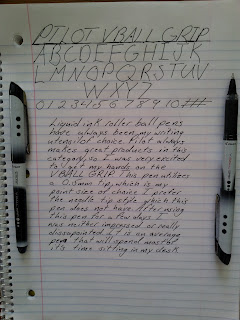 PILOT VBALL GRIP
ABCDEFGHIJK
LMNOPQRSTUV
WXYZ
0 1 2 3 4 5 6 7 8 9 10 ###
Liquid ink roller ball pens
have always been my writing
utensil of choice. Pilot always
makes great products in this
category, so I was very excited
to get my hands on the
VBALL GRIP. This pen utilizes
a 0.5mm tip, which is my
point size of choice. I prefer
the needle tip style which this
pen does not have. After using
this pen for a few days I
was neither impressed or really
dissapointed. It is an average
pen that will spend most of
it's time sitting in my desk